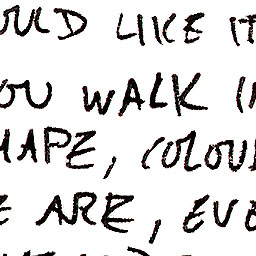 OULD LIKE IT
OU WALK I
HAPE, COLOU
E ARE, EVE